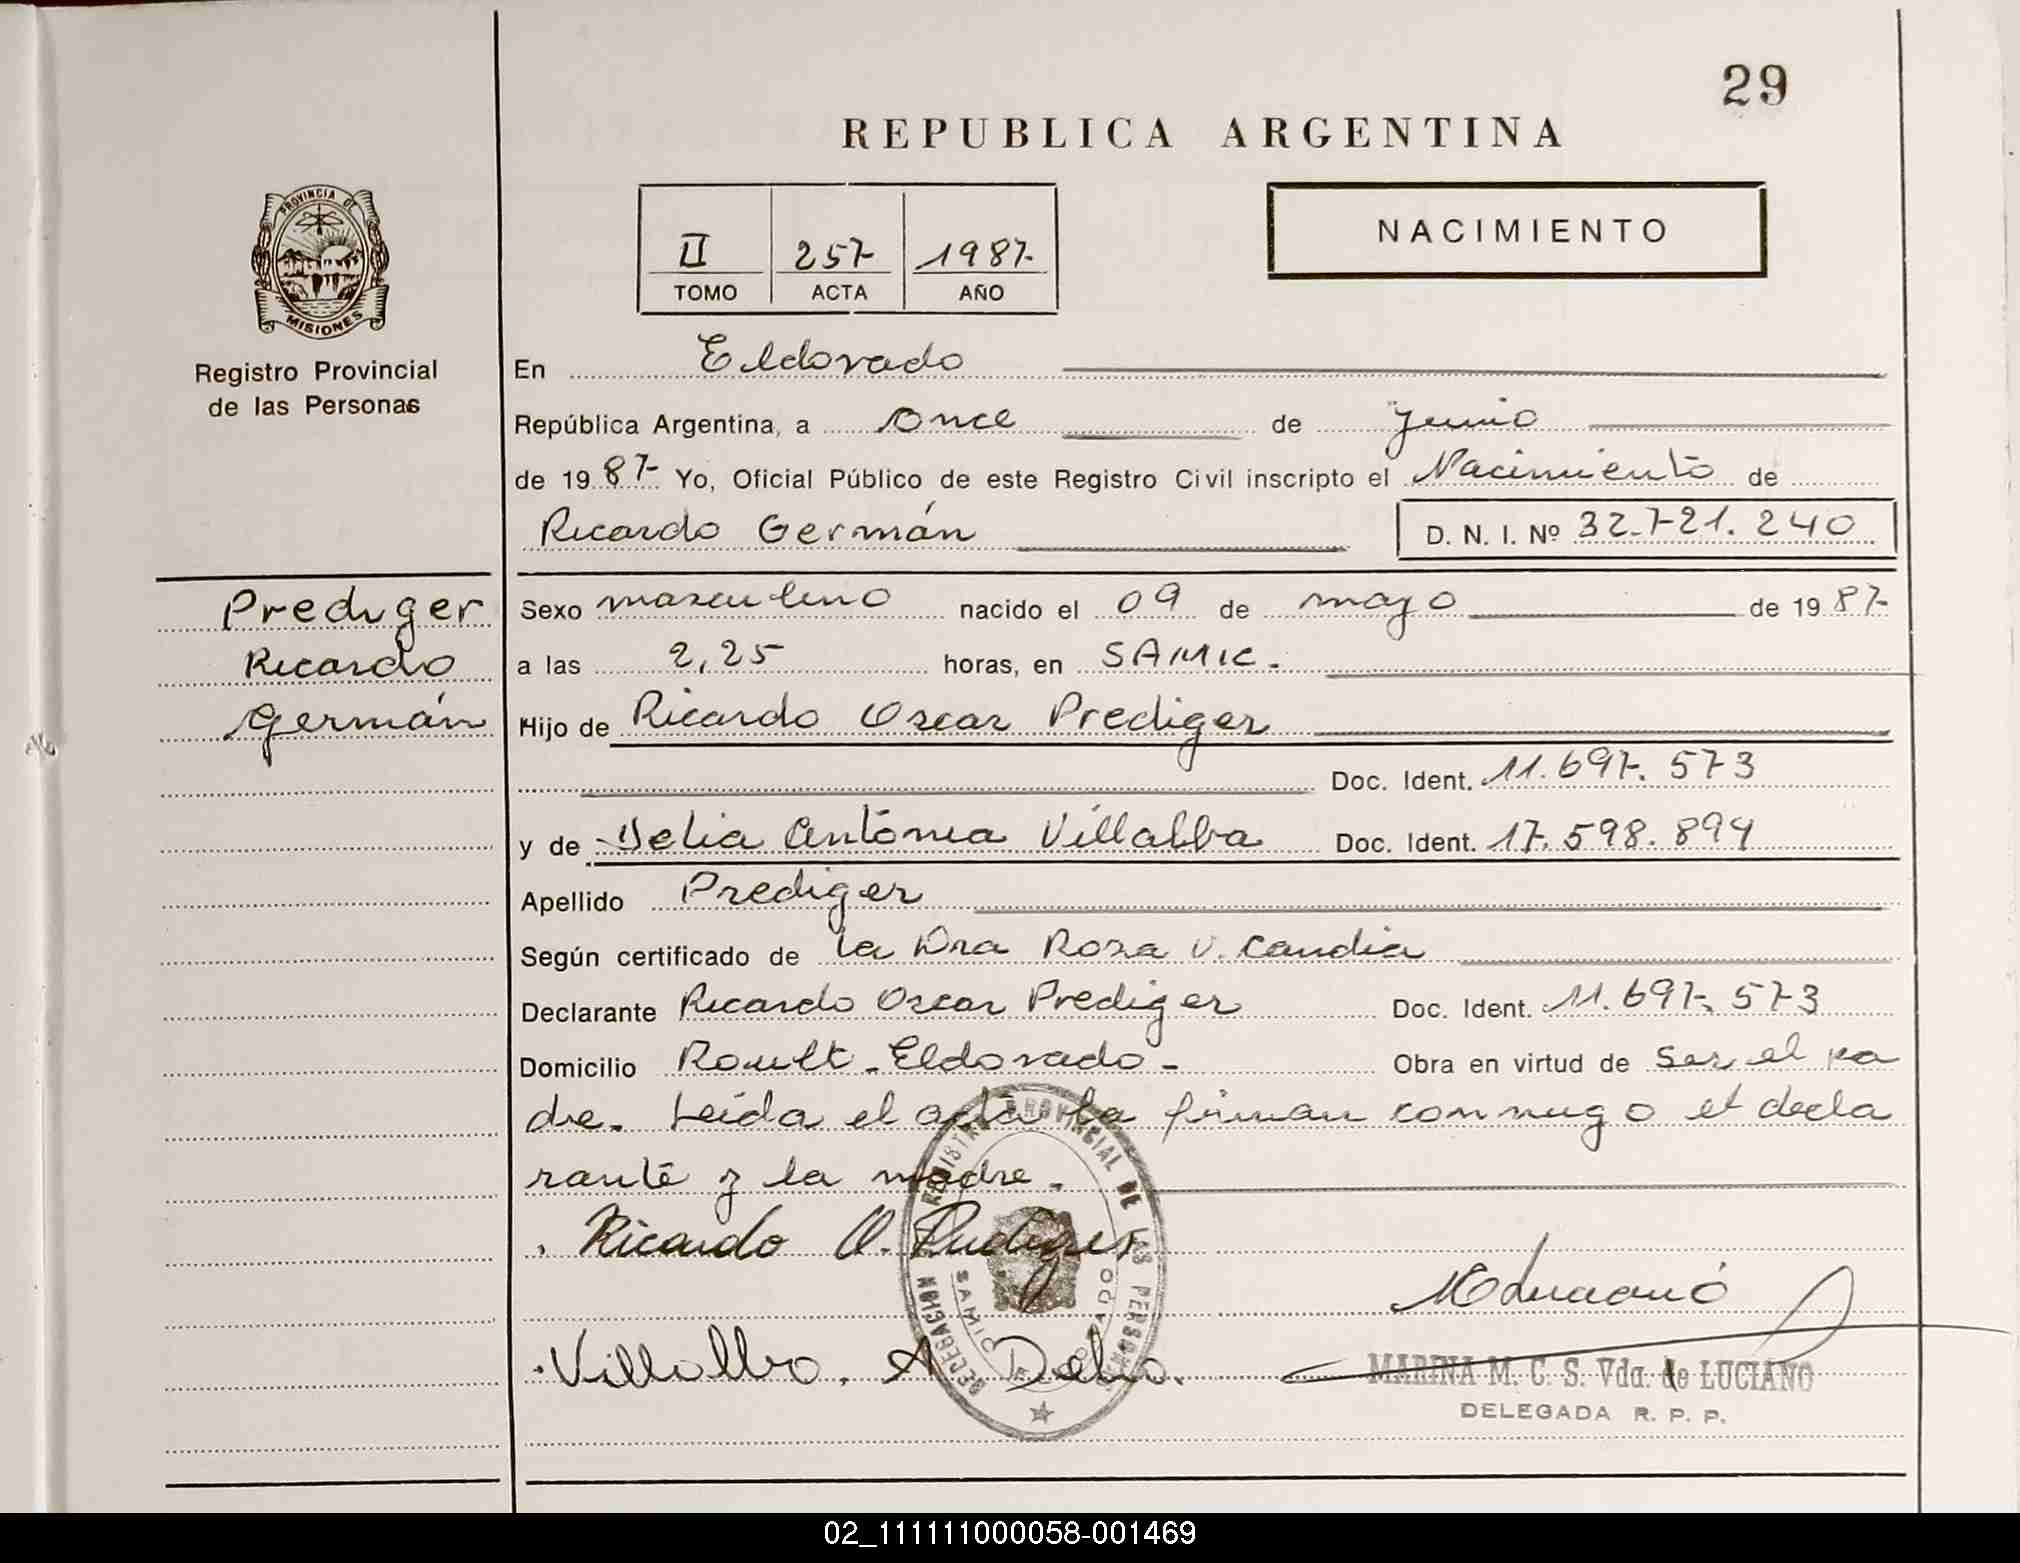 29
REPUBLICA ARGENTINA
PROVINCIA DE
MISIONES
Registro Provincial
de las Personas
II 257 1987
TOMO ACTA AÑO
NACIMIENTO
En Eldorado
República Argentina, a once de junio
de 1987 Yo, Oficial Público de este Registro Civil inscripto el Nacimiento de
Ricardo Germán D. N. I. Nº 32.721.240
Prediger
Ricardo
Germán
Sexo masculino nacido el 09 de mayo de 1987
a las 2,25 horas, en SAMIC.
Hijo de Ricardo Oscar Prediger
Doc. Ident. 11.697.573
y de Delia Antonia Villalba Doc. Ident. 17.598.894
Apellido Prediger
Según certificado de la Dra Rosa V. Candia
Declarante Ricardo Oscar Prediger Doc. Ident. 11.697.573
Domicilio Roult - Eldorado - Obra en virtud de ser el pa
dre. Leída el acta la firman conmigo el decla
rante y la madre.
Ricardo O. Prediger
Villalba. A Delia.
REGISTRO PROVINCIAL DE LAS PERSONAS
DELEGACION
SAMIC ELDORADO
MARINA M. C. S. Vda. de LUCIANO
DELEGADA R. P. P.
02_111111000058-001469